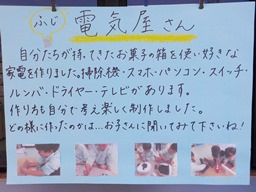 ふじ 電気屋さん
自分たちが持ってきたお菓子の箱を使い好きな
家電を作りました。掃除機・スマホ・パソコン・スイッチ・
ルンバ・ドライヤー・テレビがあります。
作り方も自分で考え楽しく制作しました。
どの様に作ったのかは…お子さんに聞いてみて下さいね!